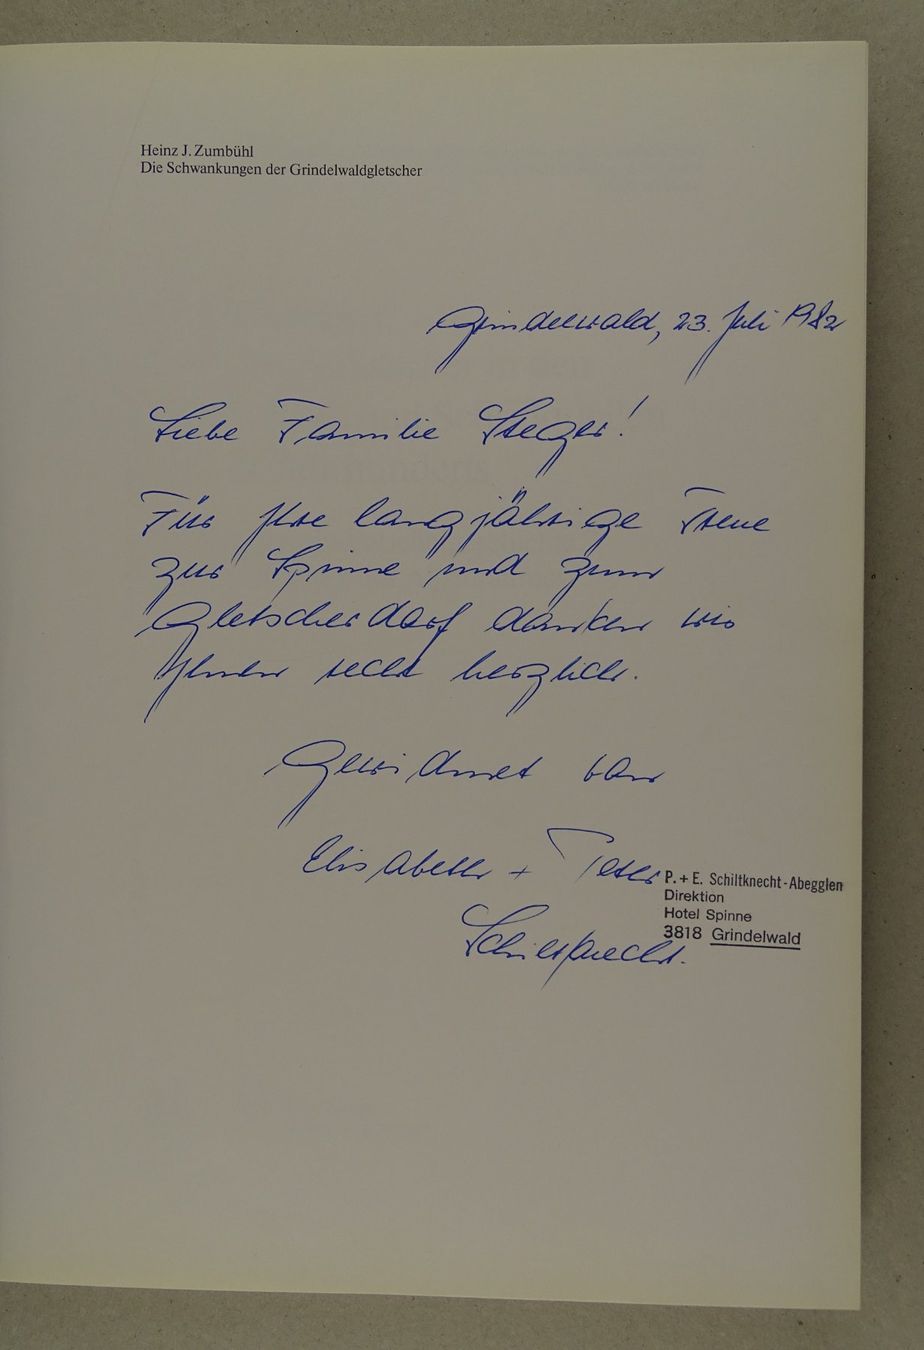 Heinz J. Zumbühl
Die Schwankungen der Grindelwaldgletscher
Grindelwald, 23. Juli 1982
Liebe Familie Steger!
Für Ihre langjährige Treue
zur Spinne und zum
Gletscherdorf danken wir
Ihnen recht herzlich.
Gewidmet von
Elisabeth + Peter
Schiltknecht.
P. + E. Schiltknecht-Abegglen
Direktion
Hotel Spinne
3818 Grindelwald